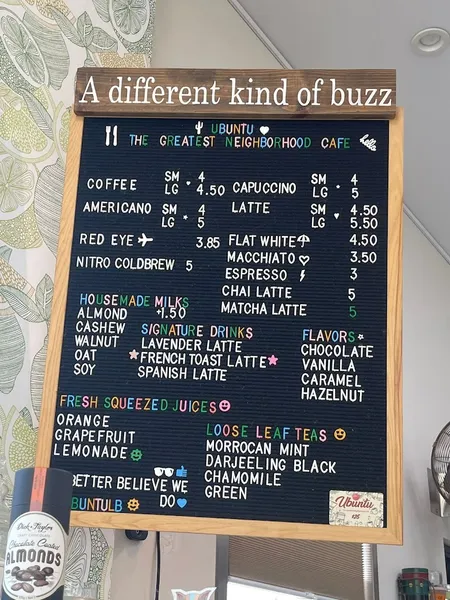 A different kind of buzz
UBUNTU
THE GREATEST NEIGHBORHOOD CAFE hello
COFFEE SM 4
LG 4.50
AMERICANO SM 4
LG 5
RED EYE 3.85
NITRO COLDBREW 5
CAPUCCINO SM 4
LG 5
LATTE SM 4.50
LG 5.50
FLAT WHITE 4.50
MACCHIATO 3.50
ESPRESSO 3
CHAI LATTE 5
MATCHA LATTE 5
HOUSEMADE MILKS
ALMOND +1.50
CASHEW
WALNUT
OAT
SOY
SIGNATURE DRINKS
LAVENDER LATTE
FRENCH TOAST LATTE
SPANISH LATTE
FLAVORS
CHOCOLATE
VANILLA
CARAMEL
HAZELNUT
FRESH SQUEEZED JUICES
ORANGE
GRAPEFRUIT
LEMONADE
LOOSE LEAF TEAS
MORROCAN MINT
DARJEELING BLACK
CHAMOMILE
GREEN
BETTER BELIEVE WE
BUNTULB DO
Ubuntu
$25
Chocolate Covered
ALMONDS